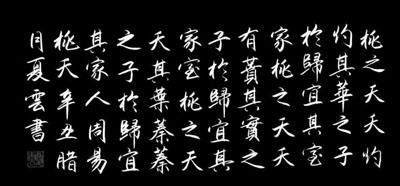 桃之夭夭灼
灼其華之子
於歸宜其室
家桃之夭夭
有蕡其實之
子於歸宜其
家室桃之夭
夭其葉蓁蓁
之子於歸宜
其家人周易
桃夭辛丑腊
月夏雲書